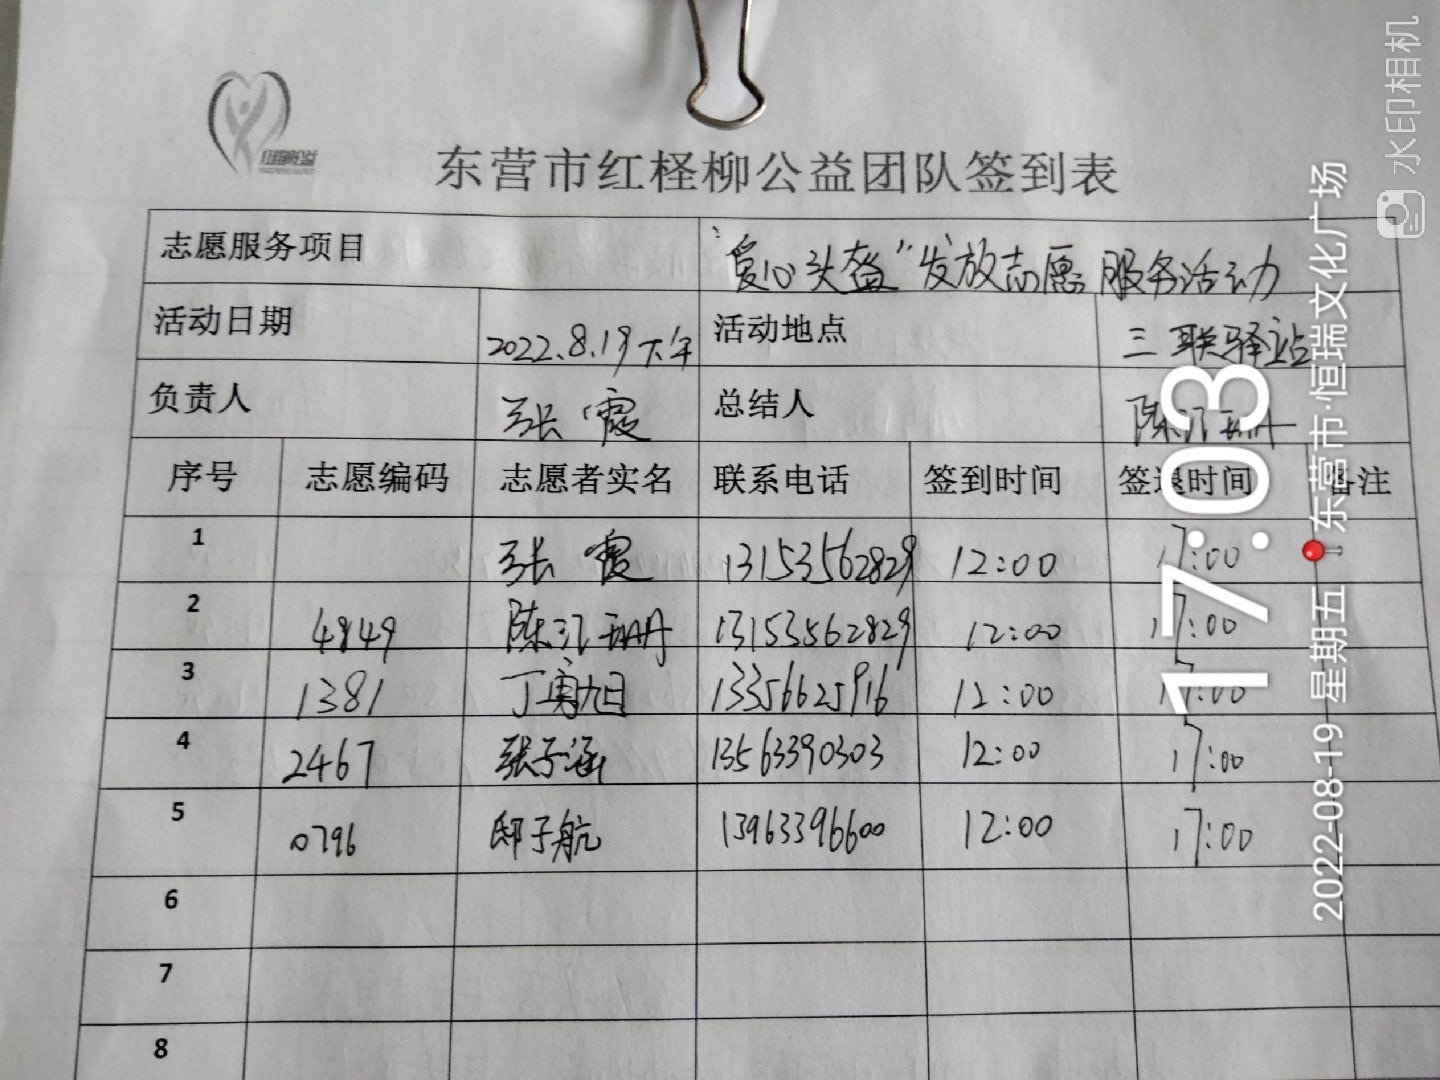 东营市红柽柳公益团队签到表
志愿服务项目 "爱心头盔"发放志愿服务活动
活动日期 2022.8.19下午 活动地点 三联驿站
负责人 张霞 总结人 陈汇珊
序号 志愿编码 志愿者实名 联系电话 签到时间 签退时间 备注
1 张霞 13153562829 12:00 17:00
2 4849 陈汇珊 13153562829 12:00 17:00
3 1381 丁寅旭 13356625916 12:00 17:00
4 2467 张子涵 13563390303 12:00 17:00
5 0796 邸子航 13963396600 12:00 17:00
6
7
8
水印相机
17:03
东营市·恒瑞文化广场
2022-08-19 星期五